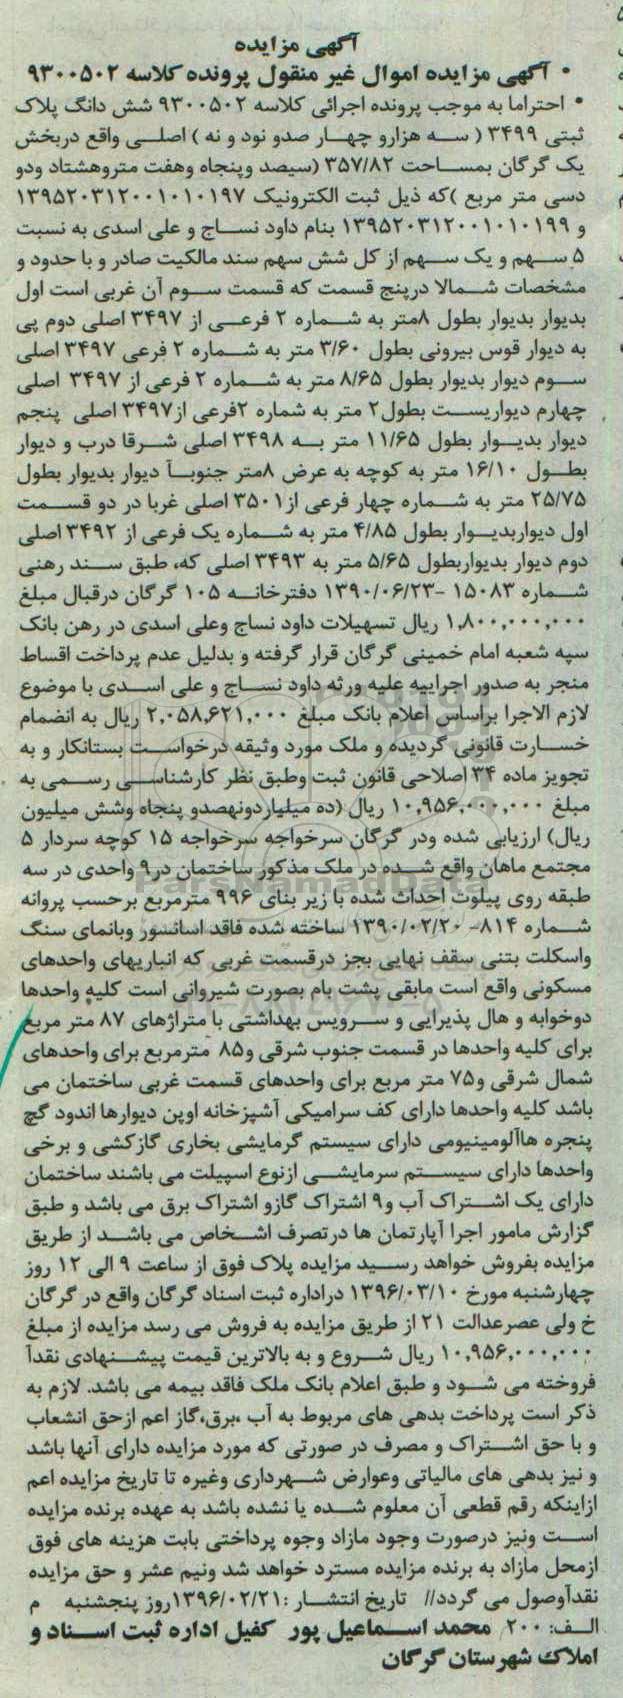 آگهی مزایده
• آگهی مزایده اموال غیر منقول پرونده کلاسه ۹۳۰۰۵۰۲
• احتراما به موجب پرونده اجرائی کلاسه ۹۳۰۰۵۰۲ شش دانگ پلاک
ثبتی ۳۴۹۹ ( سه هزارو چهار صدو نود و نه ) اصلی واقع دربخش
یک گرگان بمساحت ۳۵۷/۸۲ (سیصد وپنجاه وهفت متروهشتاد ودو
دسی متر مربع )که ذیل ثبت الکترونیک ۱۳۹۵۲۰۳۱۲۰۰۱۰۱۰۱۹۷
و ۱۳۹۵۲۰۳۱۲۰۰۱۰۱۰۱۹۹ بنام داود نساج و علی اسدی به نسبت
۵ سهم و یک سهم از کل شش سهم سند مالکیت صادر و با حدود و
مشخصات شمالا درپنج قسمت که قسمت سوم آن غربی است اول
بدیوار بدیوار بطول ۸متر به شماره ۲ فرعی از ۳۴۹۷ اصلی دوم پی
به دیوار قوس بیرونی بطول ۳/۶۰ متر به شماره ۲ فرعی ۳۴۹۷ اصلی
سوم دیوار بدیوار بطول ۸/۶۵ متر به شماره ۲ فرعی از ۳۴۹۷ اصلی
چهارم دیواریست بطول۲ متر به شماره ۲فرعی از۳۴۹۷ اصلی پنجم
دیوار بدیوار بطول ۱۱/۶۵ متر به ۳۴۹۸ اصلی شرقا درب و دیوار
بطول ۱۶/۱۰ متر به کوچه به عرض ۸متر جنوبآ دیوار بدیوار بطول
۲۵/۷۵ متر به شماره چهار فرعی از۳۵۰۱ اصلی غربا در دو قسمت
اول دیواربدیوار بطول ۴/۸۵ متر به شماره یک فرعی از ۳۴۹۲ اصلی
دوم دیوار بدیواربطول ۵/۶۵ متر به ۳۴۹۳ اصلی که، طبق سند رهنی
شماره ۱۵۰۸۳ -۱۳۹۰/۰۶/۲۳ دفترخانه ۱۰۵ گرگان درقبال مبلغ
۱,۸۰۰,۰۰۰,۰۰۰ ریال تسهیلات داود نساج وعلی اسدی در رهن بانک
سپه شعبه امام خمینی گرگان قرار گرفته و بدلیل عدم پرداخت اقساط
منجر به صدور اجراییه علیه ورثه داود نساج و علی اسدی با موضوع
لازم الاجرا براساس اعلام بانک مبلغ ۲,۰۵۸,۶۲۱,۰۰۰ ریال به انضمام
خسارت قانونی گردیده و ملک مورد وثیقه درخواست بستانکار و به
تجویز ماده ۳۴ اصلاحی قانون ثبت وطبق نظر کارشناسی رسمی به
مبلغ ۱۰,۹۵۶,۰۰۰,۰۰۰ ریال (ده میلیاردونهصدو پنجاه وشش میلیون
ریال) ارزیابی شده ودر گرگان سرخواجه سرخواجه ۱۵ کوچه سردار ۵
مجتمع ماهان واقع شده در ملک مذکور ساختمان در۹ واحدی در سه
طبقه روی پیلوت احداث شده با زیر بنای ۹۹۶ مترمربع برحسب پروانه
شماره ۸۱۴- ۱۳۹۰/۰۲/۲۰ ساخته شده فاقد اسانسور وبانمای سنگ
واسکلت بتنی سقف نهایی بجز درقسمت غربی که انباریهای واحدهای
مسکونی واقع است مابقی پشت بام بصورت شیروانی است کلیه واحدها
دوخوابه و هال پذیرایی و سرویس بهداشتی با متراژهای ۸۷ متر مربع
برای کلیه واحدها در قسمت جنوب شرقی و۸۵ مترمربع برای واحدهای
شمال شرقی و۷۵ متر مربع برای واحدهای قسمت غربی ساختمان می
باشد کلیه واحدها دارای کف سرامیکی آشپزخانه اوپن دیوارها اندود گچ
پنجره هاآلومینیومی دارای سیستم گرمایشی بخاری گازکشی و برخی
واحدها دارای سیستم سرمایشی ازنوع اسپیلت می باشند ساختمان
دارای یک اشتراک آب و۹ اشتراک گازو اشتراک برق می باشد و طبق
گزارش مامور اجرا آپارتمان ها درتصرف اشخاص می باشد از طریق
مزایده بفروش خواهد رسید مزایده پلاک فوق از ساعت ۹ الی ۱۲ روز
چهارشنبه مورخ ۱۳۹۶/۰۳/۱۰ دراداره ثبت اسناد گرگان واقع در گرگان
خ ولی عصرعدالت ۲۱ از طریق مزایده به فروش می رسد مزایده از مبلغ
۱۰,۹۵۶,۰۰۰,۰۰۰ ریال شروع و به بالاترین قیمت پیشنهادی نقدآ
فروخته می شود و طبق اعلام بانک ملک فاقد بیمه می باشد. لازم به
ذکر است پرداخت بدهی های مربوط به آب ،برق،گاز اعم ازحق انشعاب
و با حق اشتراک و مصرف در صورتی که مورد مزایده دارای آنها باشد
و نیز بدهی های مالیاتی وعوارض شهرداری وغیره تا تاریخ مزایده اعم
ازاینکه رقم قطعی آن معلوم شده یا نشده باشد به عهده برنده مزایده
است ونیز درصورت وجود مازاد وجوه پرداختی بابت هزینه های فوق
ازمحل مازاد به برنده مزایده مسترد خواهد شد ونیم عشر و حق مزایده
نقدآوصول می گردد// تاریخ انتشار :۱۳۹۶/۰۲/۲۱روز پنجشنبه م
الف: ۲۰۰ محمد اسماعیل پور کفیل اداره ثبت اسناد و
املاک شهرستان گرگان
ParsNamadData